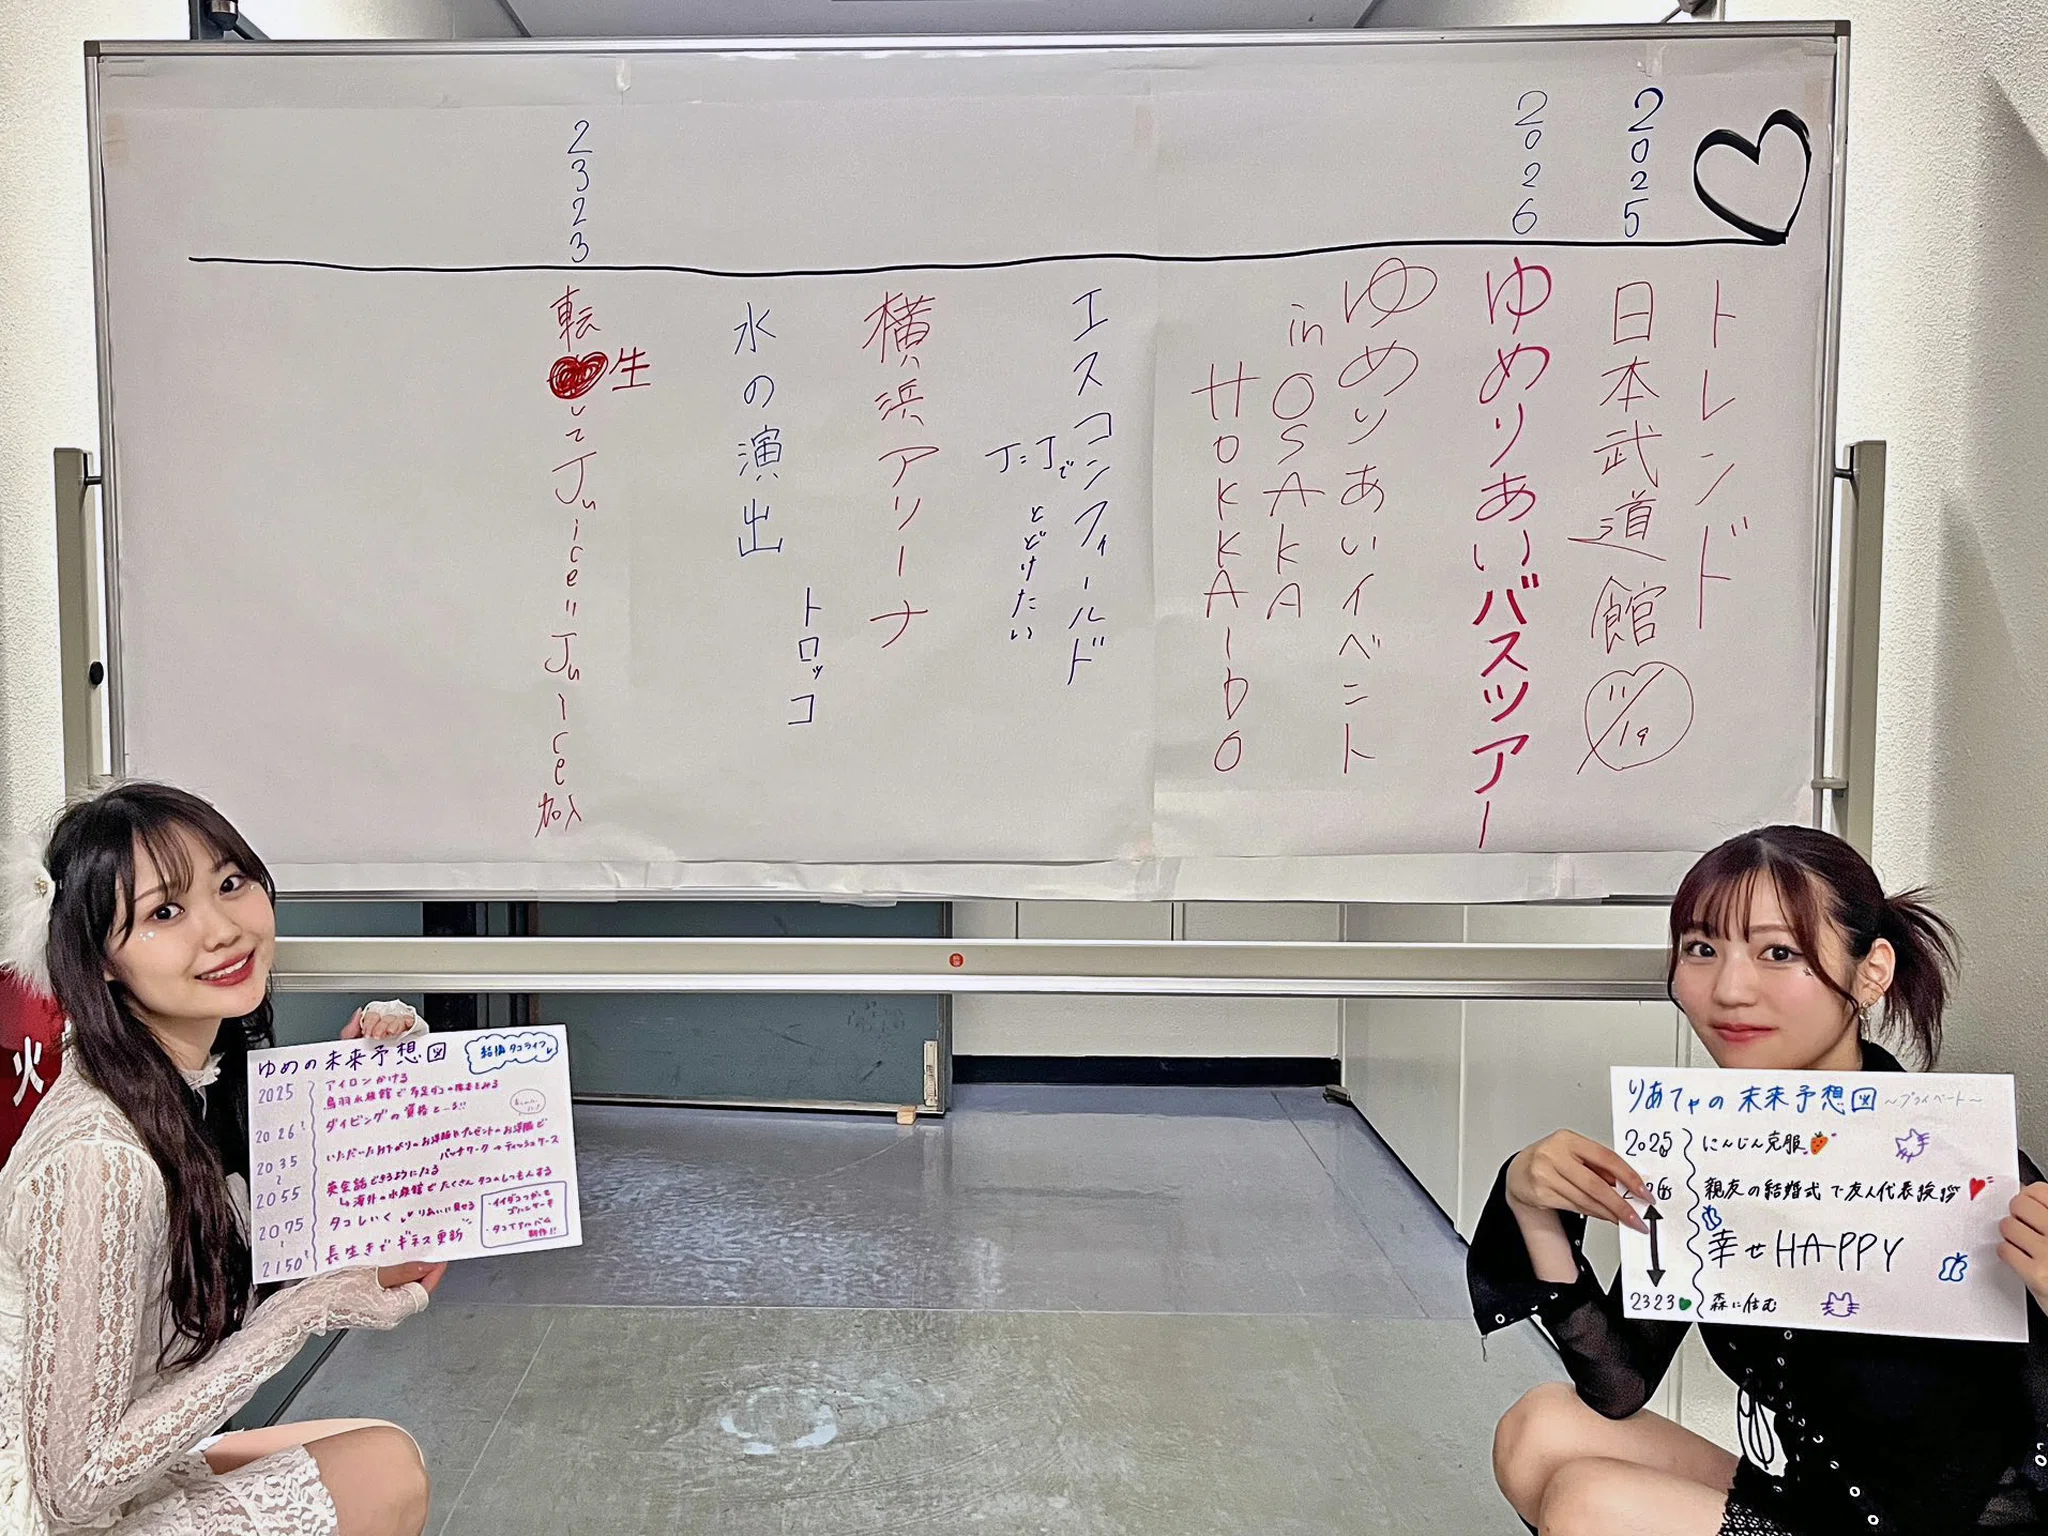 トレンド
2025
日本武道館
11/19
2026
ゆめりあいバスツアー
ゆめりあいイベント
in OSAKA
HOKKAIDO
エスコンフィールド
J=Jで
とどけたい
横浜アリーナ
水の演出
トロッコ
2323
転生
してJuice=Juice加入
火
ゆめの未来予想図
結婚 タコライフ
2025
アイロンかける
鳥羽水族館で多足ダコの標本をみる
2026
ダイビングの資格とーる!!
2035
いただいたお下がりのお洋服やプレゼントのお洋服で
パッチワーク→ティッシュケース
2055
英会話できるようになる
↳海外の水族館でたくさんタコのしつもんする
2075
タコしいく
りあいに見せる
2150
長生きでギネス更新
・イイダコつかいと
ゴハンケーキ
・タコでアルバム
制作!!
りあてゃの未来予想図 〜プライベート〜
2025
にんじん克服
2026
親友の結婚式で友人代表挨拶
幸せHAPPY
2323
森に住む